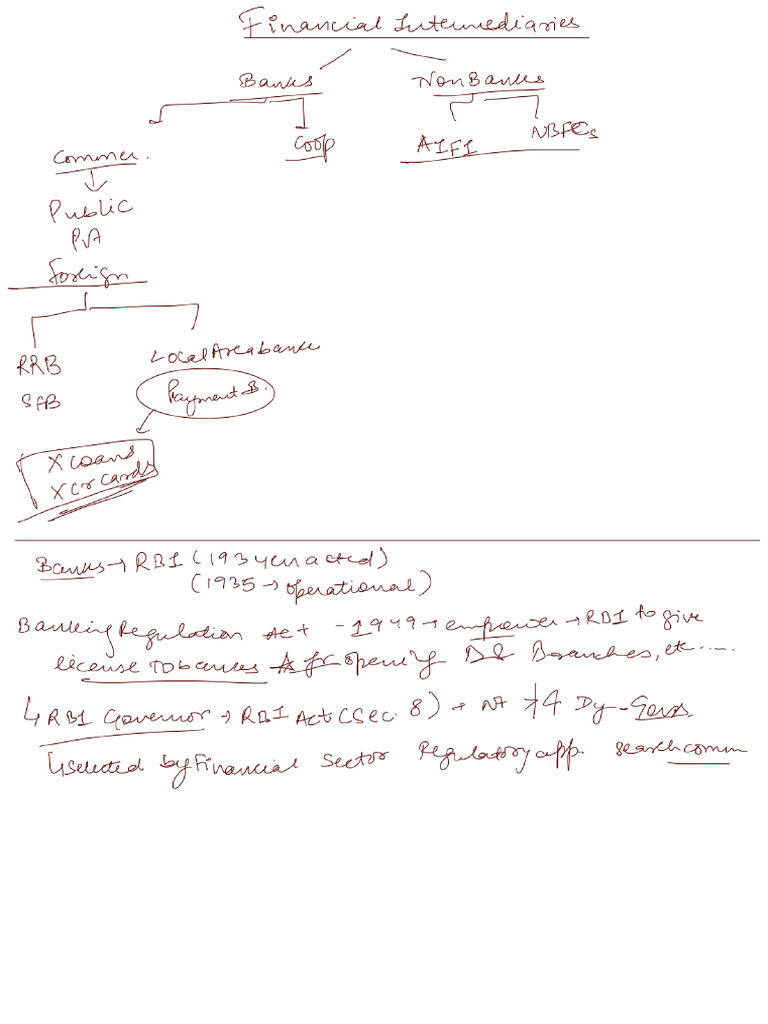 Financial Intermediaries
Banks NonBanks
Commer. Coop AIFI NBFCs
Public
Pvt
Foreign
RRB Local Area bank
SFB Payment B.
X Loans
X Cr Cards
Banks → RBI (1934 enacted)
(1935 → operational)
Banking Regulation Act - 1949 → empower → RBI to give
license to banks & for opening Branches, etc.....
↳ RBI Governor → RBI Act (Sec. 8) → Nt > 4 Dy-Govs
↳ selected by Financial Sector Regulatory app. search comm